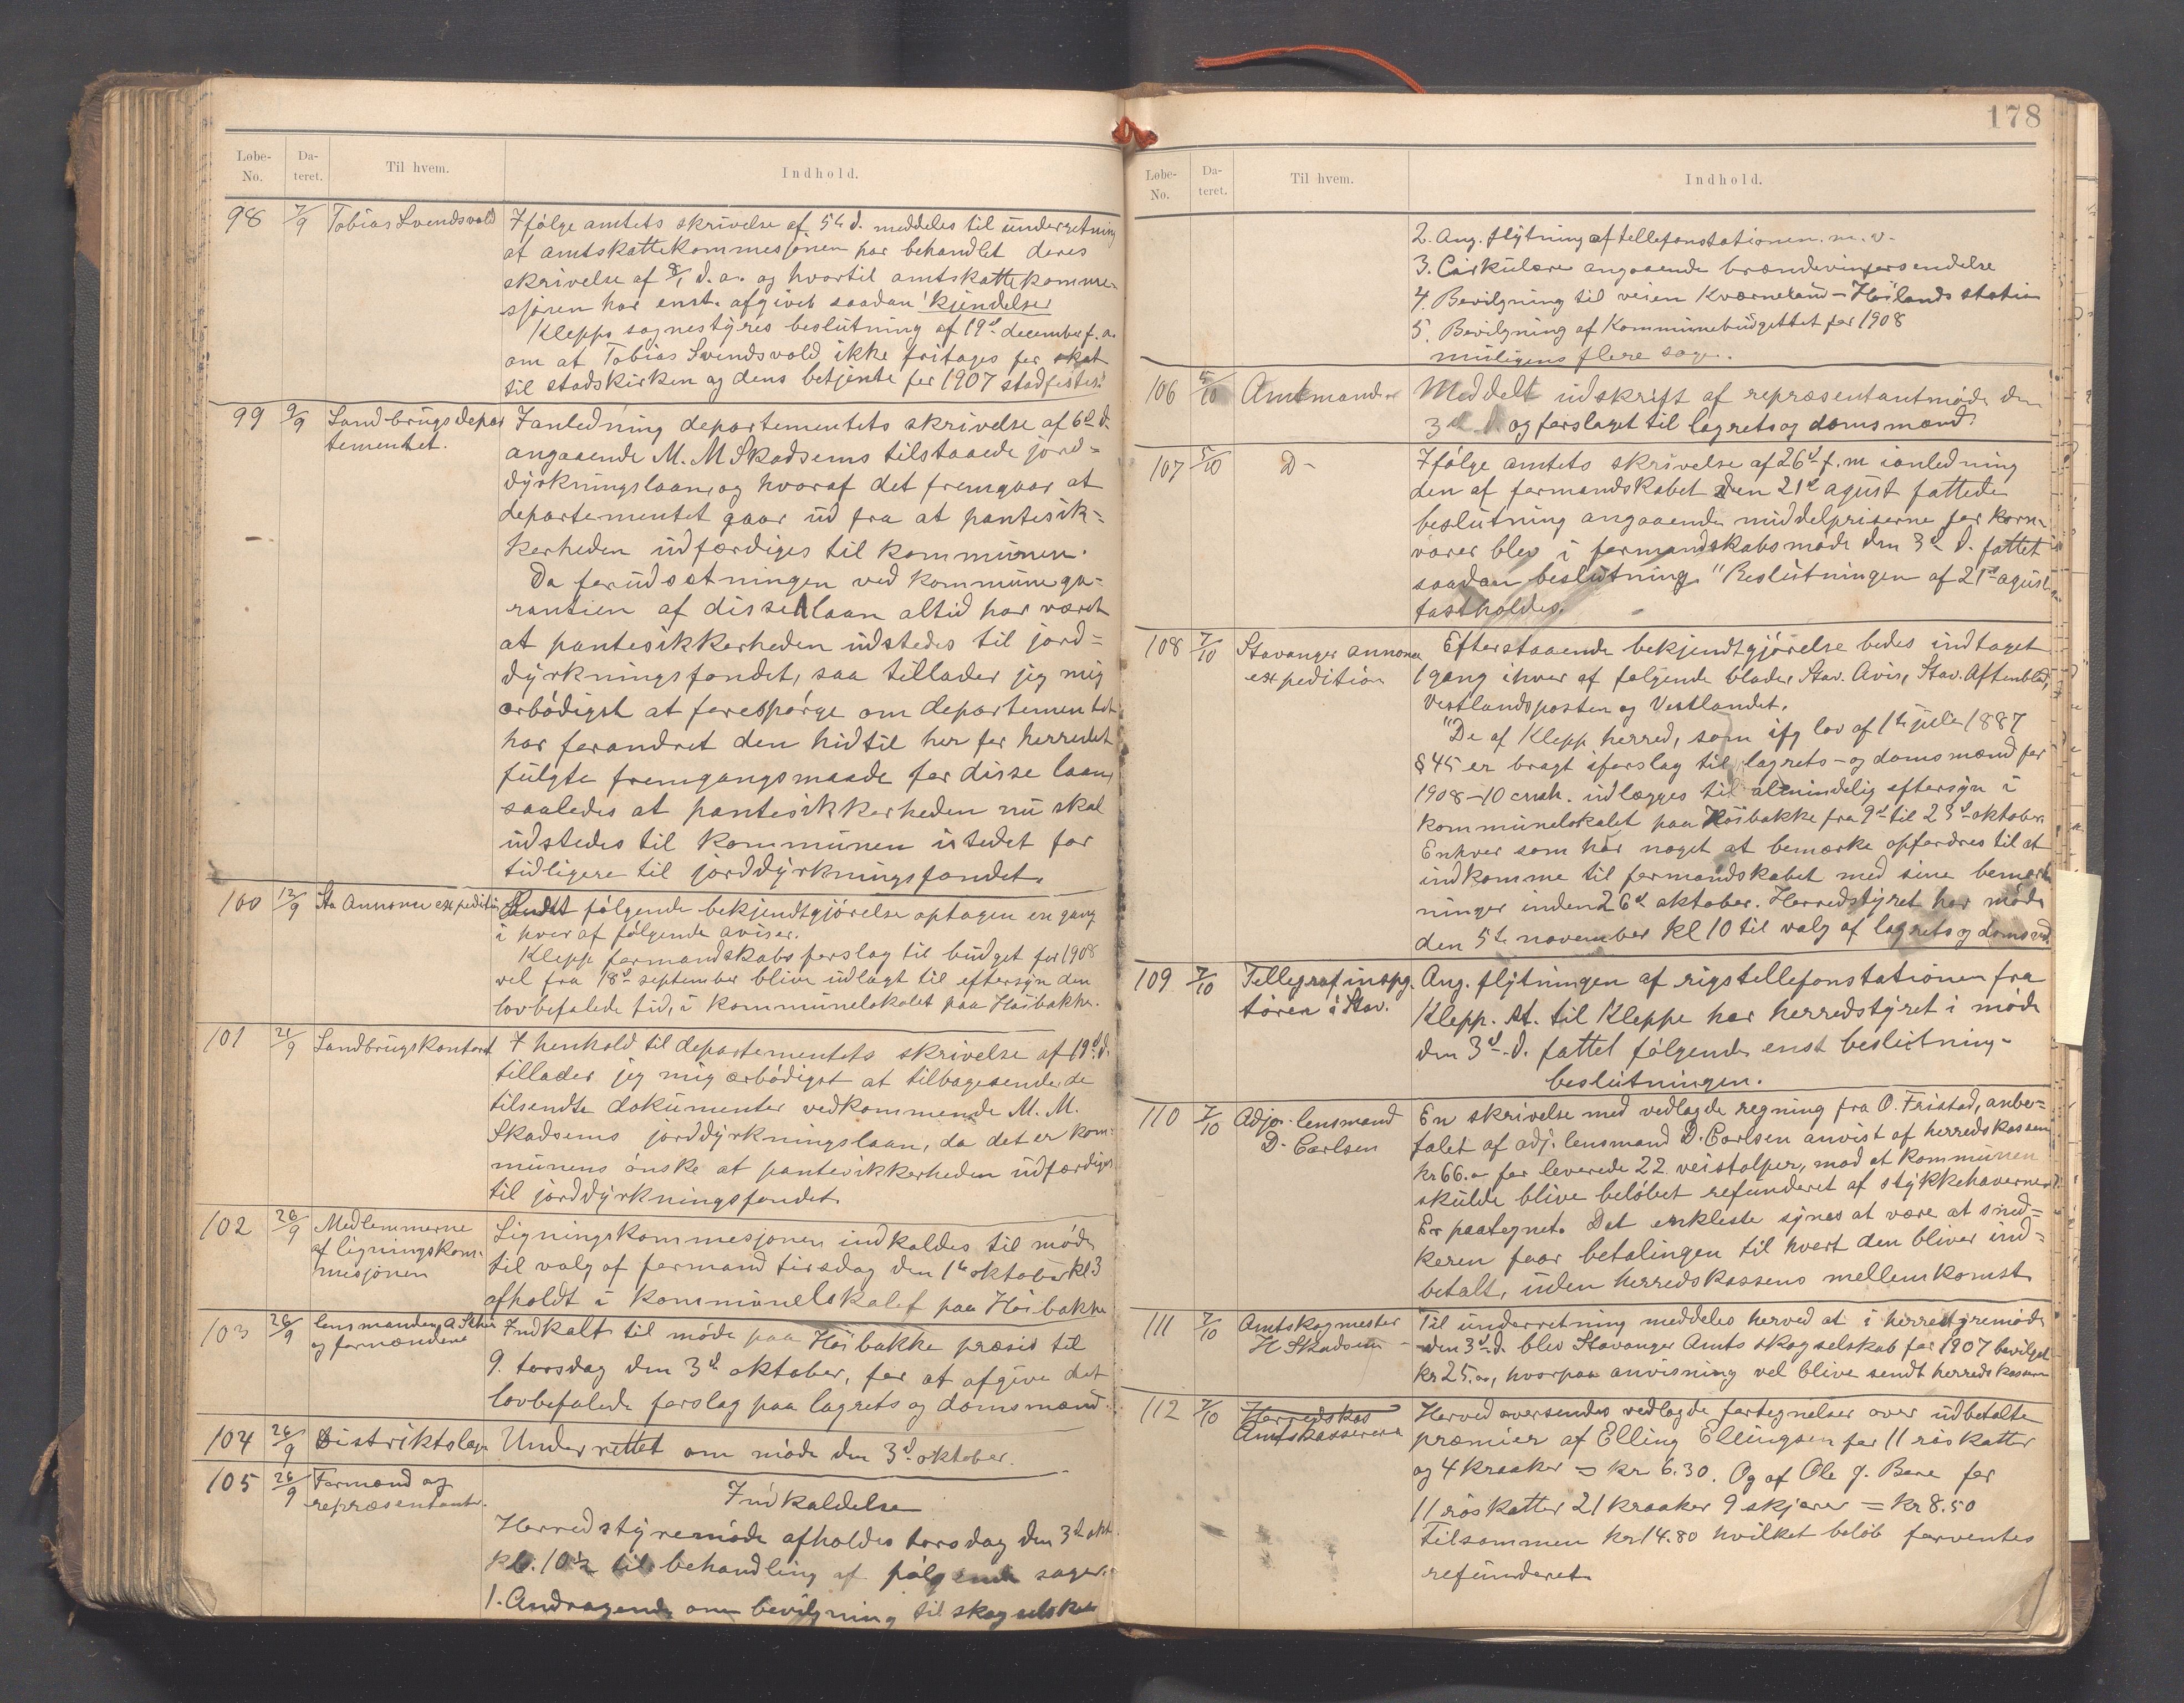 Løbe-No. Da-teret. Til hvem. Indhold.
98 7/9 Tobias Svendsvold Ifølge amtets skrivelse af 5te d. meddeles til underretning
at amtskattekommesjonen har behandlet deres
skrivelse af 8/1 d.a. og hvortil amtskattekomme-
sjonen har enst. afgivet saadan kjendelse
Klepps sognestyres beslutning af 19d december f.a.
om at Tobias Svendsvold ikke fritages for skat
til stadskirken og dens betjente for 1907 stadfestes.
99 9/9 Landbrugsdepar
tementet.
I anledning departementets skrivelse af 6te d.
angaaende M. M Skadsems tilstaaede jord=
dyrkningslaan, og hvoraf det fremgaar at
departementet gaar ud fra at pantesik=
kerheden udfærdiges til kommunen.
Da forudsetningen ved kommunega=
rantien af disse laan altid har været
at pantesikkerheden udstedes til jord=
dyrkningsfondet, saa tillader jeg mig
ærbødigst at forespørge om departementet
har forandret den hidtil her for herredet
fulgte fremgangsmaade for disse laan,
saaledes at pantesikkerheden nu skal
udstedes til kommunen istedet for
tidligere til jorddyrkningsfondet.
100 12/9 Sta Annonce expedition Sendt følgende bekjendtgjørelse optagen en gang
i hver af følgende aviser.
Klepp formandskabs forslag til budget for 1908
vel fra 18d september blive udlagt til eftersyn den
lovbefalede tid, i kommunelokalet paa Høibakke.
101 21/9 Landbrugskontoret I henhold til departementets skrivelse af 19d d.
tillader jeg mig ærbødigst at tilbagesende de
tilsendte dokumenter vedkommende M. M.
Skadsems jorddyrkningslaan, da det er kom-
munens ønske at pantesikkerheden udfærdiges
til jorddyrkningsfondet.
102 26/9 Medlemmerne
af ligningskom-
mesjonen
Ligningskommesjonen indkaldes til møde
til valg af formand tirsdag den 1te oktober kl 3
afholdt i kommunelokalet paa Høibakke
103 26/9 lensmanden
og formændene
Indkalt til møde paa Høibakke præsis til
9. torsdag den 3d oktober, for at afgive det
lovbefalede forslag paa lagrets og domsmænd.
104 26/9 Distriktslæge Underrettet om møde den 3d oktober.
105 26/9 Formænd og
repræsentanter.
Indkaldelse
Herredstyremøde afholdes torsdag den 3d okt.
kl. 10½ til behandling af følgende sager.
1. Andragende om bevilgning til skogselskab
178
Løbe-No. Da-teret. Til hvem. Indhold.
2. Ang. flytning af tellefonstationen. m.v.
3. Cirkulære angaaende brændevinforsendelse
4. Bevilgning til veien Kværneland - Høilands station
5. Bevilgning af Kommunebudgettet for 1908
muligens flere sager.
106 5/10 Amtmanden Meddelt udskrift af repræsentantmøde den
3d d. og forslaget til lagrets og domsmænd
107 5/10 D- Ifølge amtets skrivelse af 26d f.m ianledning
den af formandskabet den 21d agust fattede
beslutning angaaende middelpriserne for korn-
varer blev i formandskabsmøde den 3d d. fattet
saadan beslutning. "Beslutningen af 21d agust
fastholdes.
108 7/10 Stavanger annonce
expedition
Efterstaaende bekjendtgjørelse bedes indtaget
1 gang ihver af følgende blade, Stav. Avis, Stav. Aftenblad,
Vestlandsposten og Vestlandet.
"De af Klepp herred, som ifg lov af 1te juli 1887
§ 45 er bragt iforslag til lagrets- og domsmænd for
1908-10 udlægges til almindelig eftersyn i
kommunelokalet paa Høibakke fra 9d til 23d oktober.
Enhver som har noget at bemærke opfordres til at
indkomme til formandskabet med sine bemærk
ninger inden 26d oktober. Herredstyret har møde
den 5te november kl 10 til valg af lagrets og domsmd
109 7/10 Tellegrafinspg.
tøren i Stav.
Ang. flytningen af rigstellefonstationen fra
Klepp. st. til Kleppe har herredstyret i møde
den 3d d. fattet følgende enst beslutning-
beslutningen.
110 7/10 Adjo. lensmand
D. Carlsen
En skrivelse med vedlagde regning fra O. Fristad, anbe=
falet af adj. lensmand D. Carlsen anvist af herredskassen
kr 66.oo for leverede 22 veistolper, mod at kommunen
skulde blive beløbet refunderet af stykkehaverne.
Er paategnet. Det enkleste synes at være at sned=
keren faar betalingen til hvert den bliver ind=
betalt, uden herredskassens mellemkomst
111 7/10 Amtskogmester
H Skadsem
Til underretning meddeles herved at i herredstyremøde
den 3d d. blev Stavanger Amts skogselskab for 1907 bevilget
kr 25.oo, hvorpaa anvisning vel blive sendt herredskassen
112 7/10 Herredskas
Amtskassereren
Herved oversendes vedlagde fortegnelser over udbetalte
præmier af Elling Ellingsen for 11 røskatter
og 4 kraaker = kr 6.30. Og af Ole J. Bore for
11 røskatter 21 kraaker 9 skjærer = kr 8.50
Tilsammen kr 14.80 hvilket beløb forventes
refunderet.